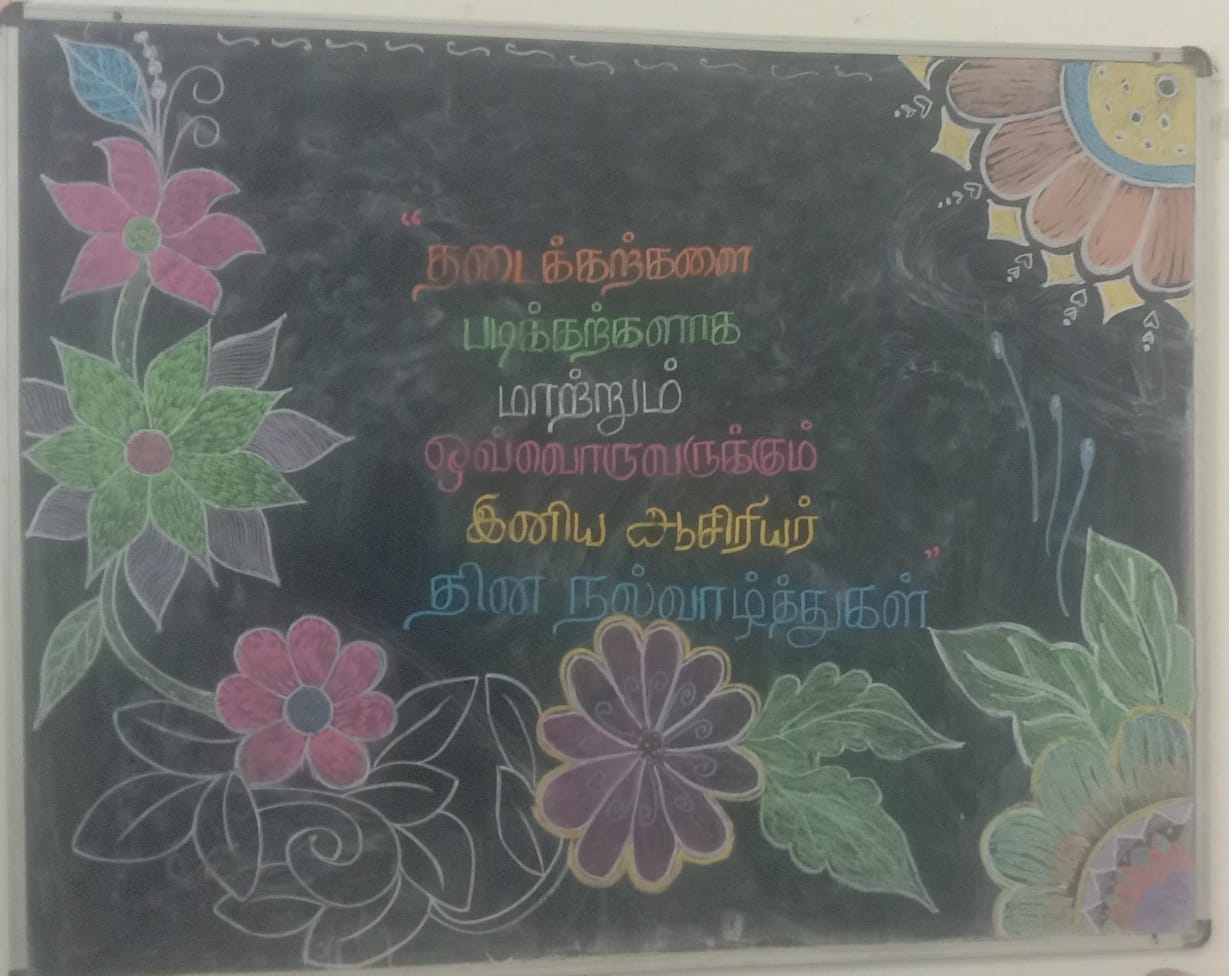 “தடைக்கற்களை
படிக்கற்களாக
மாற்றும்
ஒவ்வொருவருக்கும்
இனிய ஆசிரியர்
தின நல்வாழ்த்துகள்”